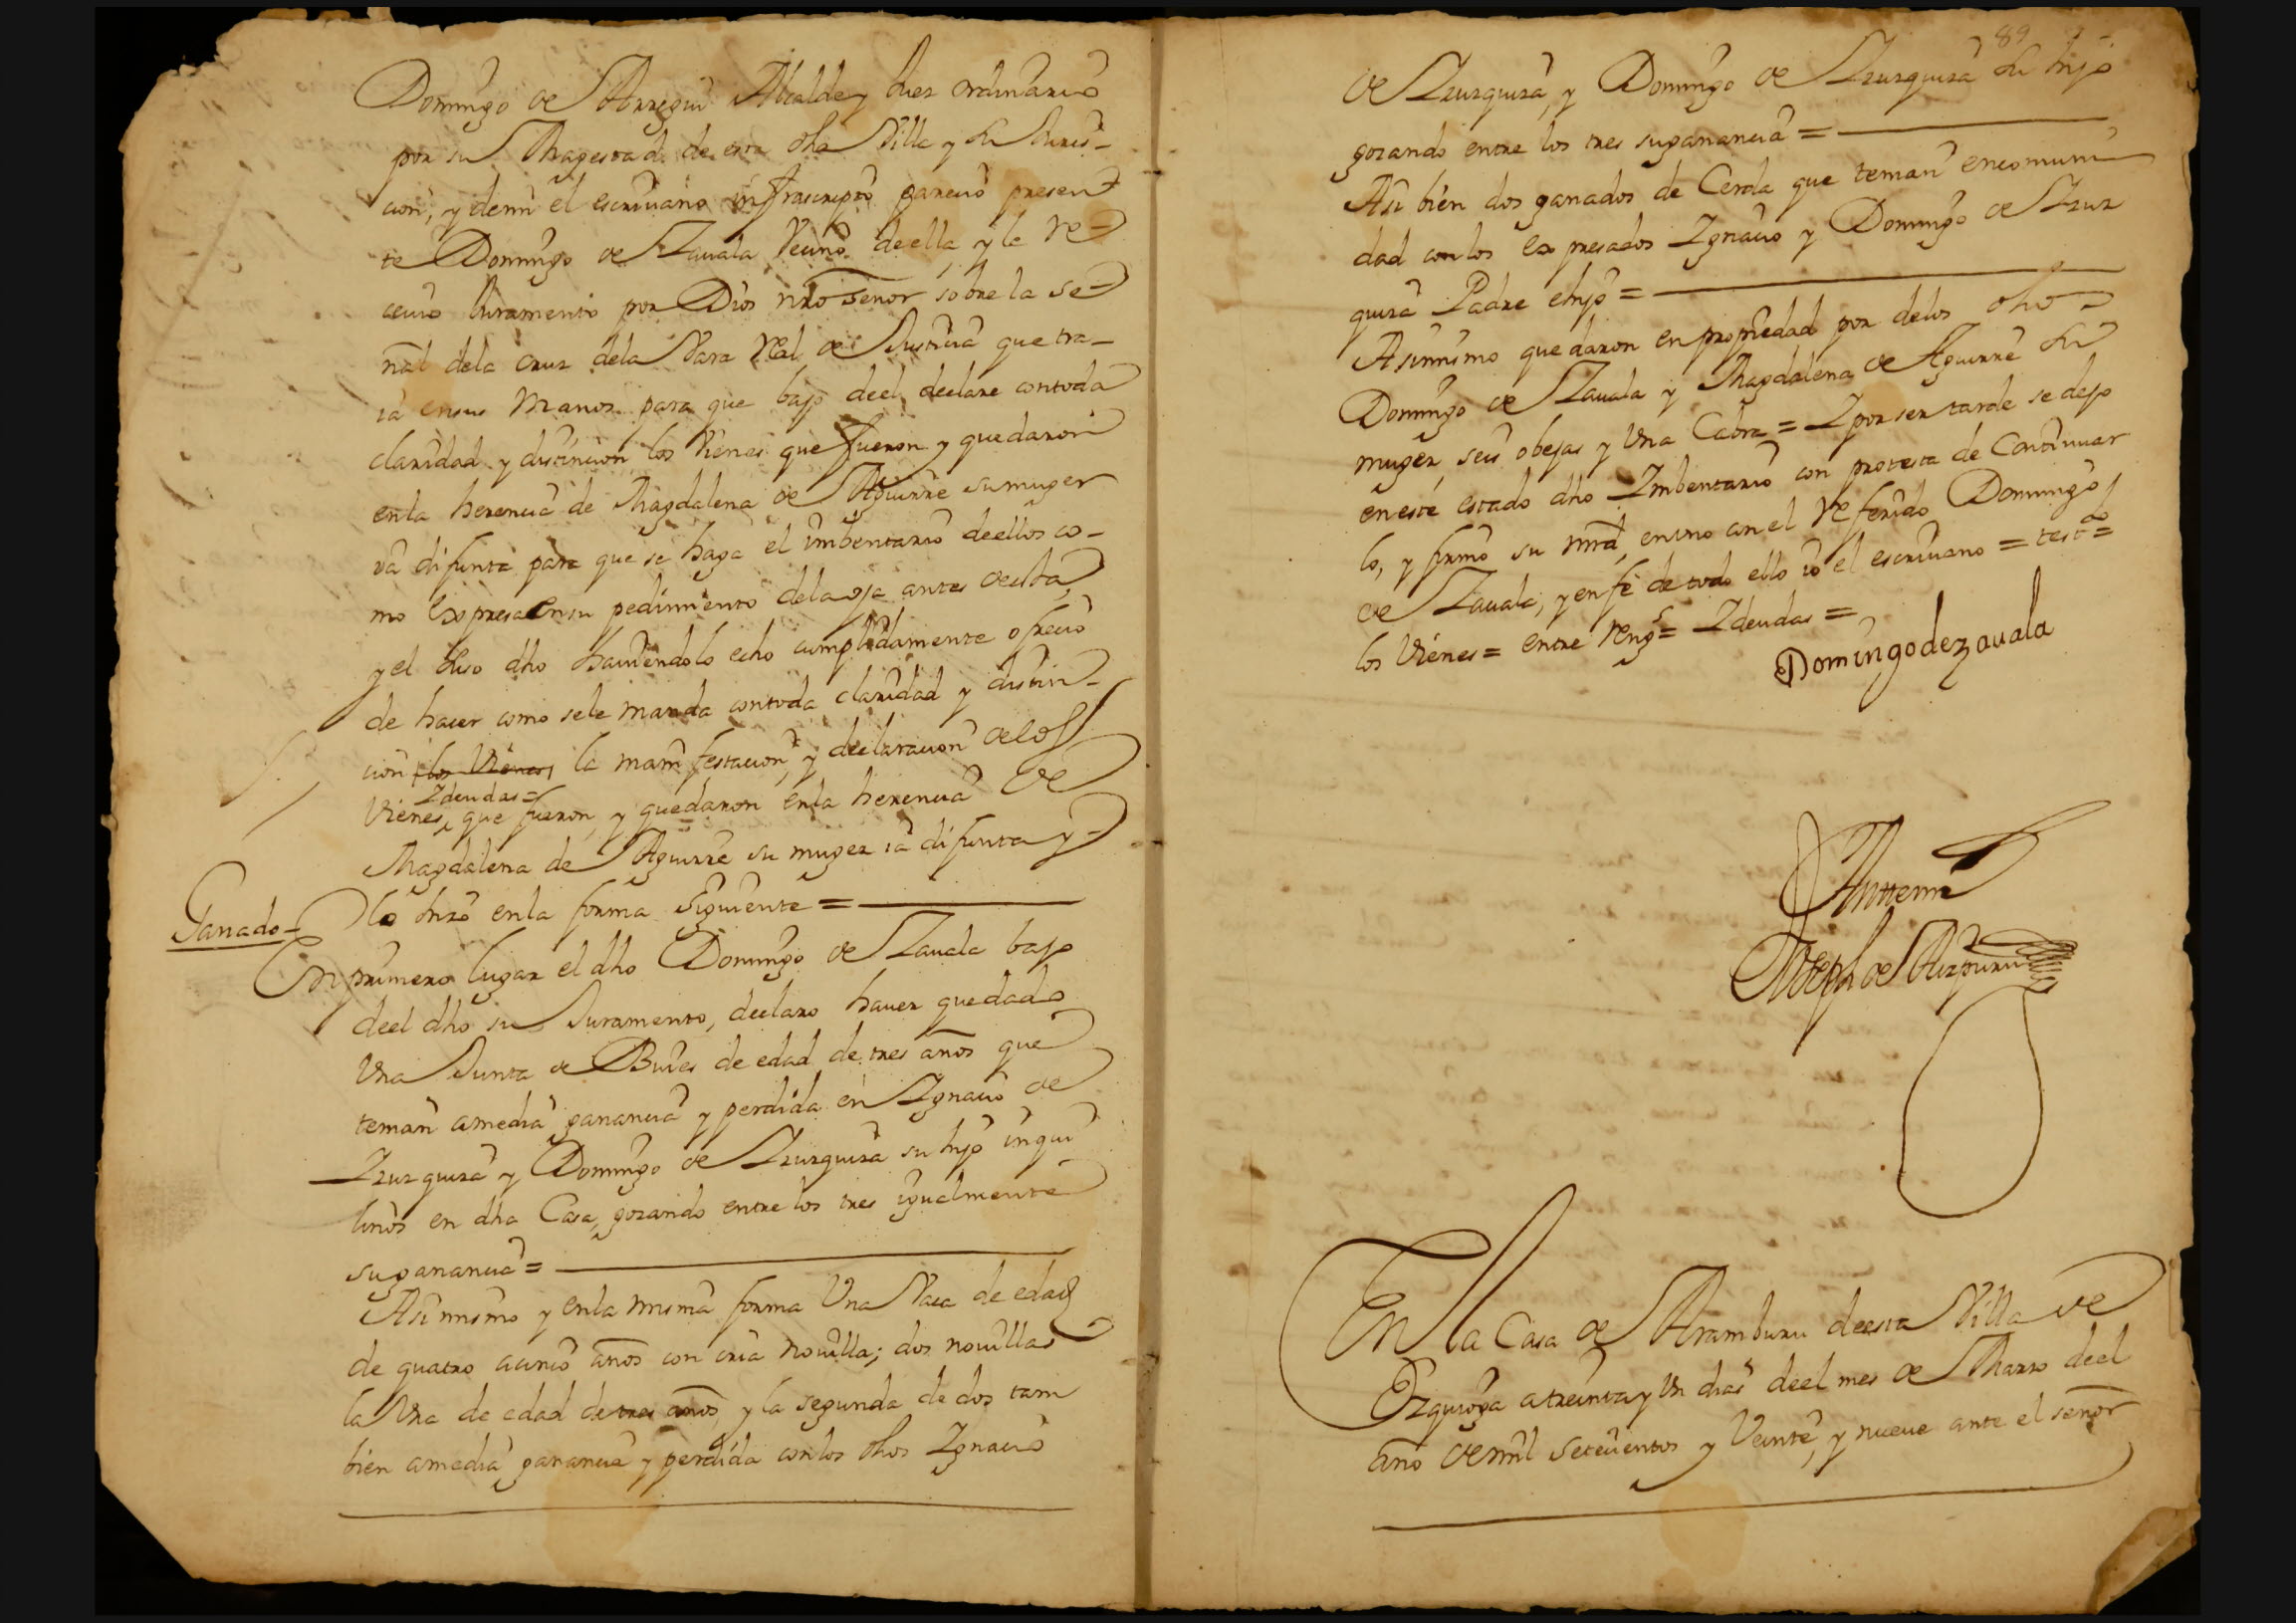 Domingo de Arregui Alcalde y Juez ordinario
por su Magestad de esta dha Villa y su Juris-
cion, y demi el escrivano infraescripto parecio presen-
te Domingo de Zavala Vecino de ella, y le re-
civio Juramento por Dios nro señor sobre la se-
ñal dela cruz dela Vara Real de Justicia que tra-
ia ensus manos para que bajo deel declare contoda
claridad y distincion los Vienes que fueron y quedaron
enla herencia de Magdalena de Aguirre sumuger
ya difunta para que se haga el imbentario deellos co-
mo Expresa Ensu pedimiento dela oja antes de esta,
y el suso dho haviendolo echo cumplidamente ofrecio
de hacer como sele manda contoda claridad y distin-
cion los Vienes la manifestacion, y declaracion delos
Ideudas=
Vienes, que fueron, y quedaron enla herencia de
Magdalena de Aguirre su muger ia difunta y
lo hizo enla forma siguiente =
Ganado-
En primero lugar el dho Domingo de Zavala bajo
deel dho su Juramento, declaro haver quedado
Una Junta de Buies de edad de tres años que
tenian amedia ganancia y perdida en Ignacio de
Izurquiza y Domingo de Izurquiza su hijo inqui
linos en dha Casa, gozando entre los tres igualmente
suganancia =
Asi mismo y enla misma forma Una Vaca de edad
de quatro acinco años con cria novilla; dos novillas
la Una de edad detres años, y la segunda de dos tam
bien amedia ganancia y perdida conlos dhos Ignacio
89
de Izurquiza, y Domingo de Izurquiza su hijo
gozando entre los tres suganancia =
Asi bien dos ganados de Cerda que tenian encomuni
dad conlos Expresados Ignacio y Domingo de Izur
quiza Padre ehijo =
Asimismo quedaron enpropiedad por delos dhos
Domingo de Zavala y Magdalena de Aguirre su
muger, seis obejas y Una Cabra = I por ser tarde se dejo
eneste estado dho Imbentario con protesta de Continuar
lo, y firmo su mrd, enuno con el referido Domingo
de Zavala, y enfe de todo ello io el escrivano = testdo=
los Vienes = entre rengs = Ideudas =
Domingo dezavala
Antemi
Joseph de Aizpuru
En la Casa de Aramburu deesta Villa de
Ezquioga atreinta y Un dias deel mes de Marzo deel
año demil setecientos y Veinte, y nueve ante el señor